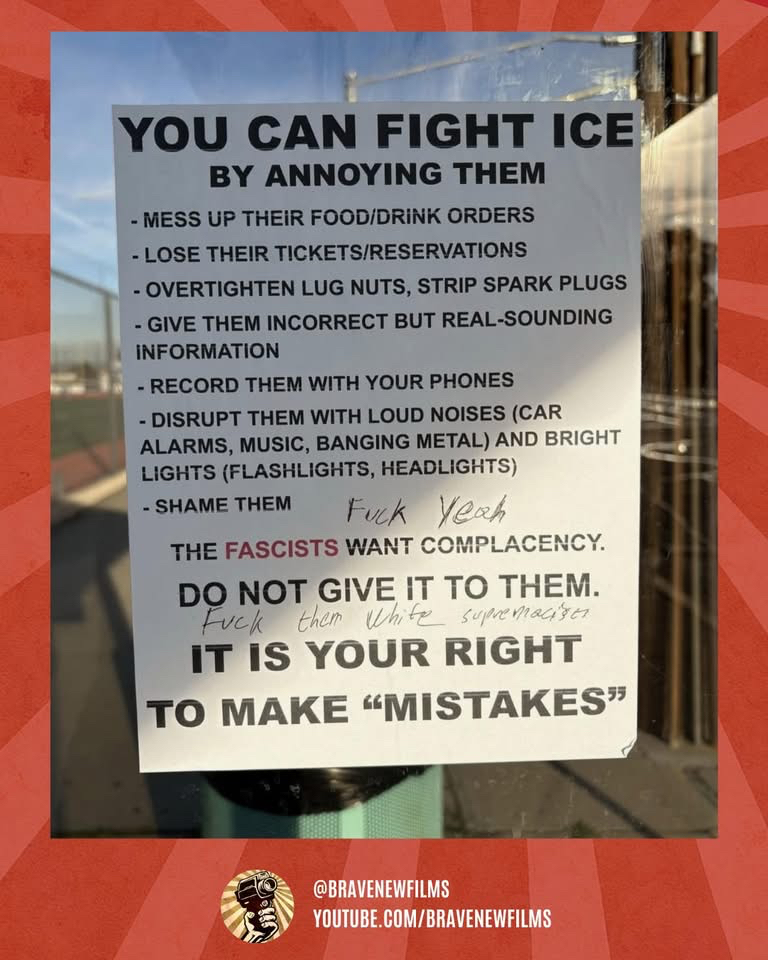 YOU CAN FIGHT ICE
BY ANNOYING THEM
- MESS UP THEIR FOOD/DRINK ORDERS
- LOSE THEIR TICKETS/RESERVATIONS
- OVERTIGHTEN LUG NUTS, STRIP SPARK PLUGS
- GIVE THEM INCORRECT BUT REAL-SOUNDING
INFORMATION
- RECORD THEM WITH YOUR PHONES
- DISRUPT THEM WITH LOUD NOISES (CAR
ALARMS, MUSIC, BANGING METAL) AND BRIGHT
LIGHTS (FLASHLIGHTS, HEADLIGHTS)
- SHAME THEM
Fuck Yeah
THE FASCISTS WANT COMPLACENCY.
DO NOT GIVE IT TO THEM.
Fuck them White supremacists
IT IS YOUR RIGHT
TO MAKE “MISTAKES”
@BRAVENEWFILMS
YOUTUBE.COM/BRAVENEWFILMS